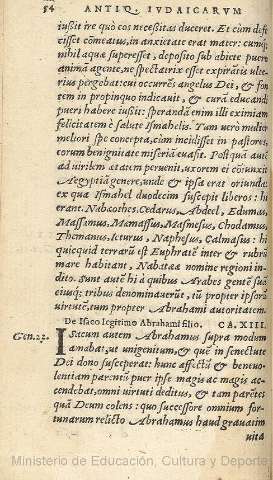 54 ANTIQ. IVDAICARVM
iussit ire quò cos necessitas duceret. Et cùm defe
cisset cōmeatus, in anxietate erat mater: cumq́;
nihil aquæ superesset, deposito sub abiete puero
animã agente, ne spectatrix esset expirãtis ulte-
rius pergebat: cui occurrēs angelus Dei, & fon
tem in propinquo indicauit, & curã educandi
pueri habere iussit: sperandā enim illi eximiam
felicitatē è salute Ismahelis. Tum uerò multo
meliori spe concepta, cùm incidisset in pastores,
eorum benignitate miseriã euasit. Postquã aut
ad uirilem ætatem peruenit, uxorem ei cōiunxit
Aegyptiã genere, unde & ipsa erat oriunda:
ex qua Ismahel duodecim suscepit liberos: hi
erant. Nabæothes, Cedarus, Abdeel, Edumas,
Massamus, Mamassus, Masmesus, Chodamus,
Themanus, Ieturus, Naphesus, Calmasus: hi
quicquid terrarū est Euphratē inter & rubrū
mare habitant, Nabateæ nomine regioni in-
dito. Sunt autē hi à quibus Arabes gentē suã
eiusq́; tribus denominauerūt, iū propter ipsorū
uirtutē, tum propter Abrahami autoritatem.
De Isaco legitimo Abrahami filio. CA. XIII.
Gen. 22.
ISacum autem Abrahamus supra modum
amabat, ut unigenitum, & quē in senectute
Dei dono susceperat: hunc affectū & beneuo-
lentiam parentū puer ipse magis ac magis ac-
cendebat, omni uirtuti deditus, & tam parētes
quã Deum colens: quo successore omnium for-
tunarum relicto Abrahamus haud grauatim
uitã
Ministerio de Educación, Cultura y Deporte